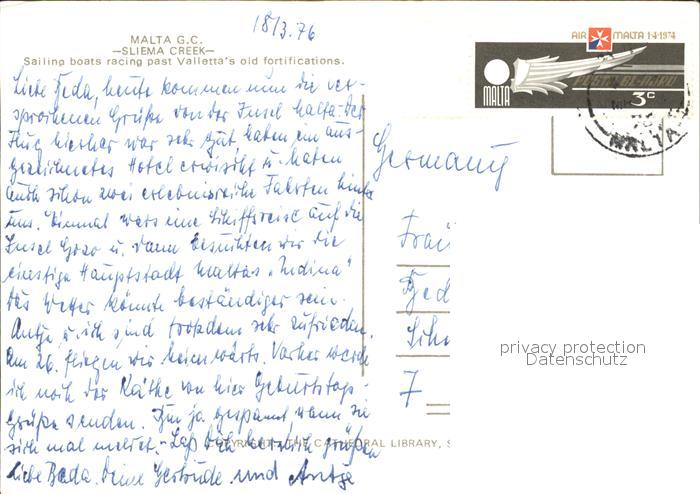 18/3.76
MALTA G.C.
—SLIEMA CREEK—
Sailing boats racing past Valletta's old fortifications.
AIR MALTA 1·4·1974
MALTA
3c
MALTA
Liebe Beda, heute kommen nun die ver-
sprochenen Grüße von der Insel Malta. Der
Flug hierher war sehr gut, haben ein aus-
gezeichnetes Hotel erwischt u. haben
auch schon zwei erlebnisreiche Fahrten hinter
uns. Einmal wars eine Schiffsreise auf die
Insel Gozo u. dann besuchten wir die
einstige Hauptstadt Maltas "Mdina"
Das Wetter könnte beständiger sein.
Antje u. ich sind trotzdem sehr zufrieden.
Am 26. fliegen wir heimwärts. Vorher werde
ich noch der Käthe von hier Geburtstags-
grüße senden. Bin ja gespannt wann sie
sich mal meldet. – Laß Dich herzlich grüßen
liebe Beda. Deine Gertrude und Antje
Germany
Fräu
Bed
Schu
7
privacy protection
Datenschutz
COPYRIGHT THE CATHEDRAL LIBRARY, S